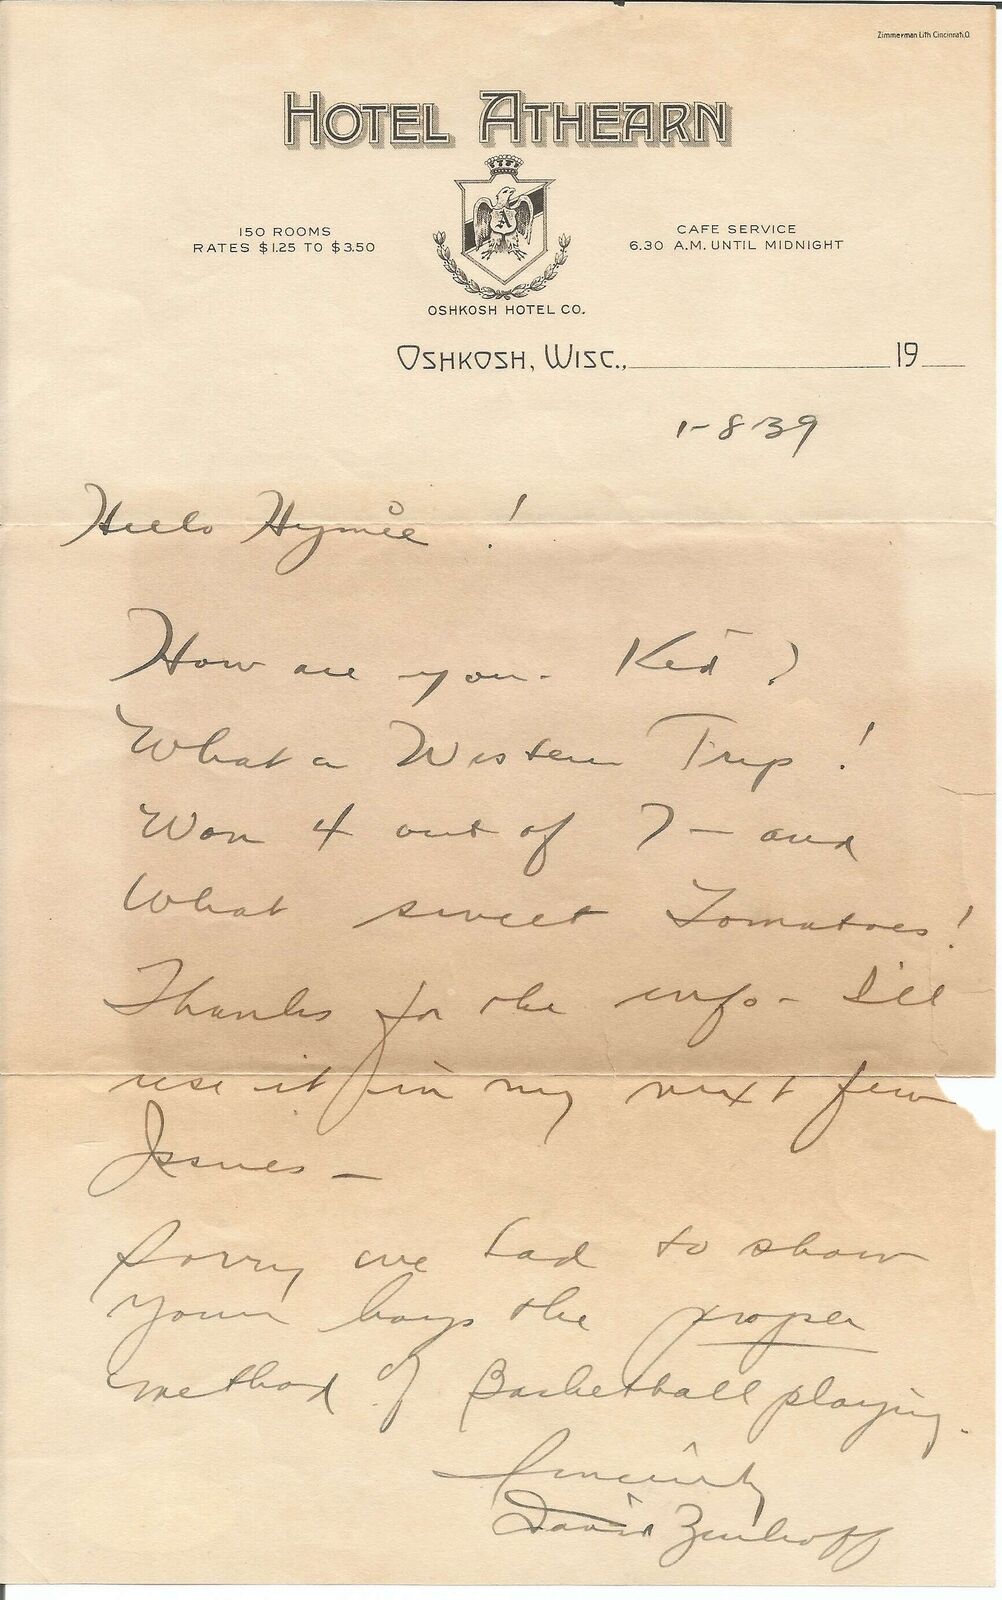 Zimmerman Lith Cincinnati.O.
HOTEL ATHEARN
150 ROOMS
RATES $1.25 TO $3.50
A
CAFE SERVICE
6.30 A.M. UNTIL MIDNIGHT
OSHKOSH HOTEL CO.
OSHKOSH, WISC., 19
1-8-39
Hello Hymie!
How are you - Kid?
What a Western Trip!
Won 4 out of 7 - and
What sweet Tomatoes!
Thanks for the info - I'll
use it in my next few
Issues -
Sorry we had to show
your boys the proper
method of Basketball playing.
Sincerely
David Zinkoff